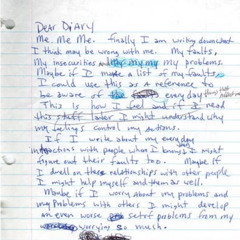 Dear Diary
Me. Me. Me. Finally I am writing down what
I think may be wrong with me. My faults,
My insecurities and my my my problems.
Maybe if I make a list of my faults
I could use this as a reference to
be aware of the every day
This is how I feel and if I read
this stuff later I might understand why
my feelings control my actions.
If I write about my everyday
interaction with people whom I know I might
figure out their faults too. Maybe if
I dwell on these relationships with other people
I might help myself and them as well.
Maybe if I worry about my problems and
my problems with others I might develop
an even worse set of problems from my
worrying so much.